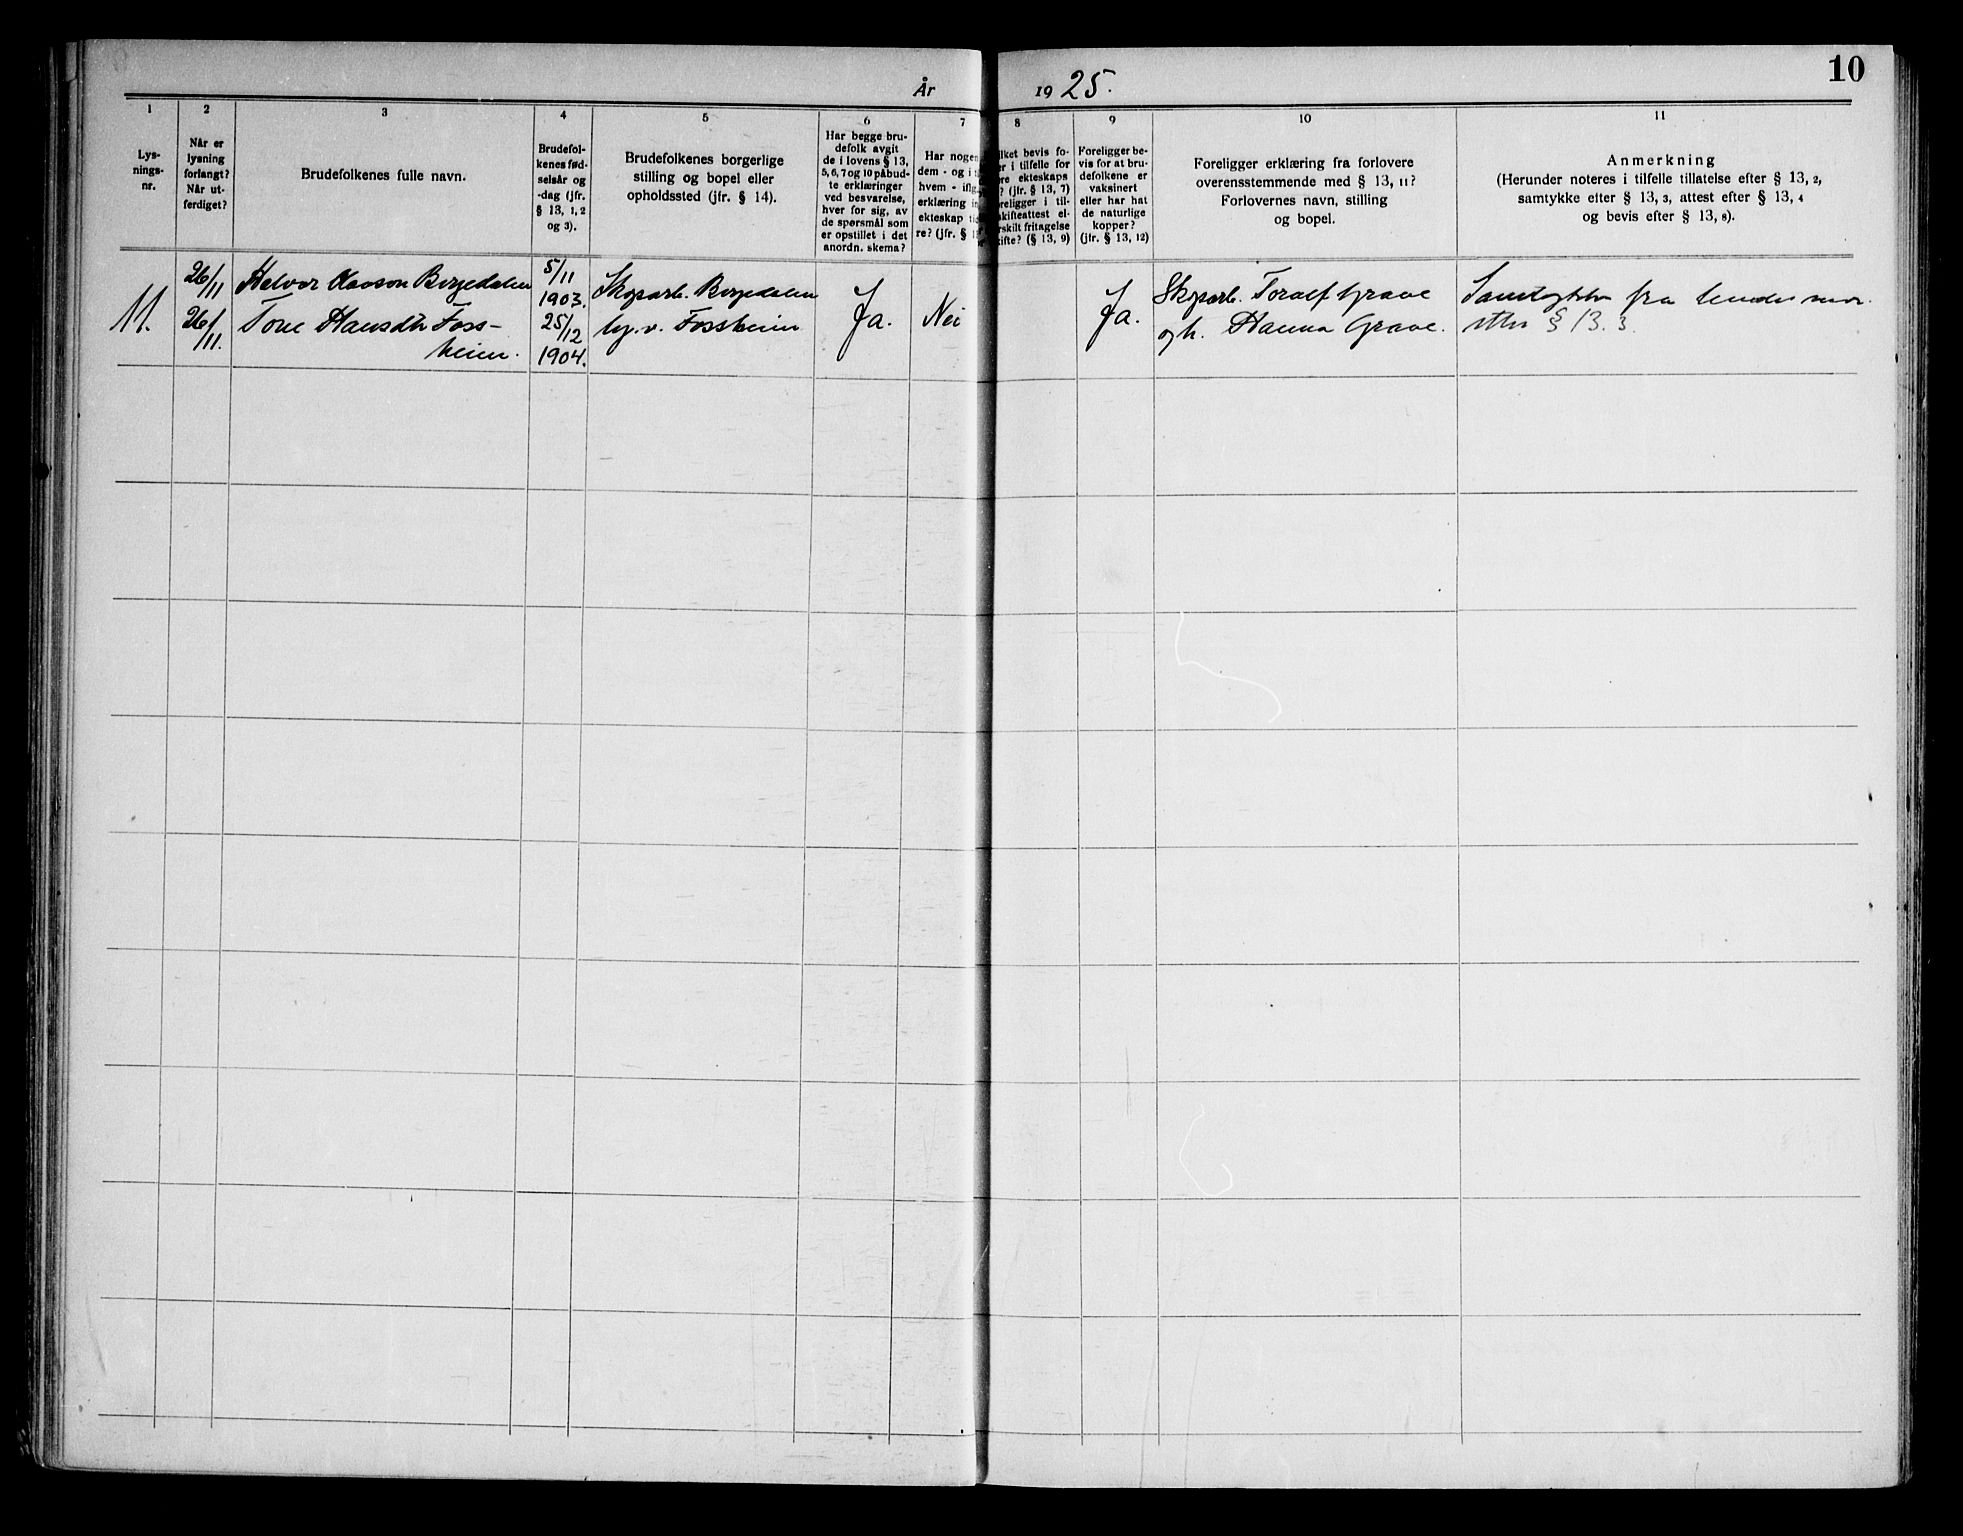 10
År 1925.
1
Lys-
nings-
nr.
2
Når er
lysning
forlangt?
Når ut-
ferdiget?
3
Brudefolkenes fulle navn.
4
Brudefol-
kenes fød-
selsår og
-dag (jfr.
§ 13, 1, 2
og 3).
5
Brudefolkenes borgerlige
stilling og bopel eller
opholdssted (jfr. § 14).
6
Har begge bru-
defolk avgit
de i lovens § 13,
5, 6, 7 og 10 påbud-
te erklæringer
ved besvarelse,
hver for sig, av
de spørsmål som
er opstillet i det
anordn. skema?
7
Har nogen
dem - og i
hvem - ifl
erklæring
ekteskap
re? (jfr. §
8
bevis fo-
i tilfelle for
ekteskaps
? (jfr. § 13, 7)
i til-
skifteattest el-
fritagelse
(§ 13, 9)
9
Foreligger be-
vis for at bru-
defolkene er
vaksinert
eller har hat
de naturlige
kopper?
(jfr. § 13, 12)
10
Foreligger erklæring fra forlovere
overensstemmende med § 13, 11?
Forlovernes navn, stilling
og bopel.
11
Anmerkning
(Herunder noteres i tilfelle tillatelse efter § 13, 2,
samtykke efter § 13, 3, attest efter § 13, 4
og bevis efter § 13, 8).
11.
26/11
26/11.
Halvor Olavson Borgedalen
Tone Hansdtr Foss-
heim.
5/11
1903.
25/12
1904.
Skogsarb. Borgedalen
v. Fossheim
Ja.
Nei
Ja.
Skogsarb. Toralf Grave
og h. Hanna Grave.
fra
§ 13. 3.